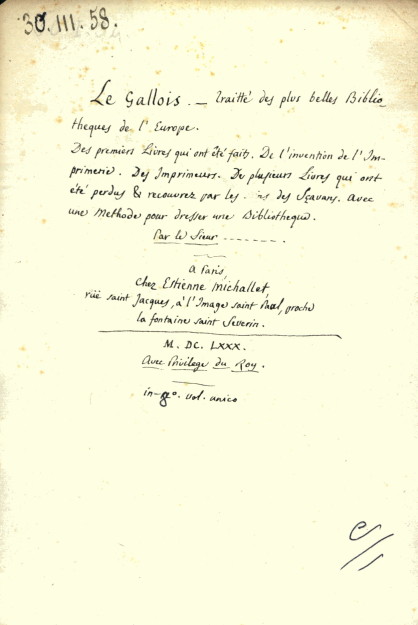 30.III.58.
Le Gallois. — Traitté des plus belles Biblio-
theques de l'Europe.
Des premiers Livres qui ont été faits. De l'invention de l'Im-
primerie. Des Imprimeurs. De plusieurs Livres qui ont
été perdus & recouvrez par les des Sçavans. Avec
une Methode pour dresser une Bibliotheque.
Par le Sieur --------
A Paris,
Chez Estienne Michallet,
rüe saint Jacques, à l'Image saint Paul, proche
la fontaine saint Severin.
M. DC. LXXX.
Avec Privilege du Roy.
vol. unico